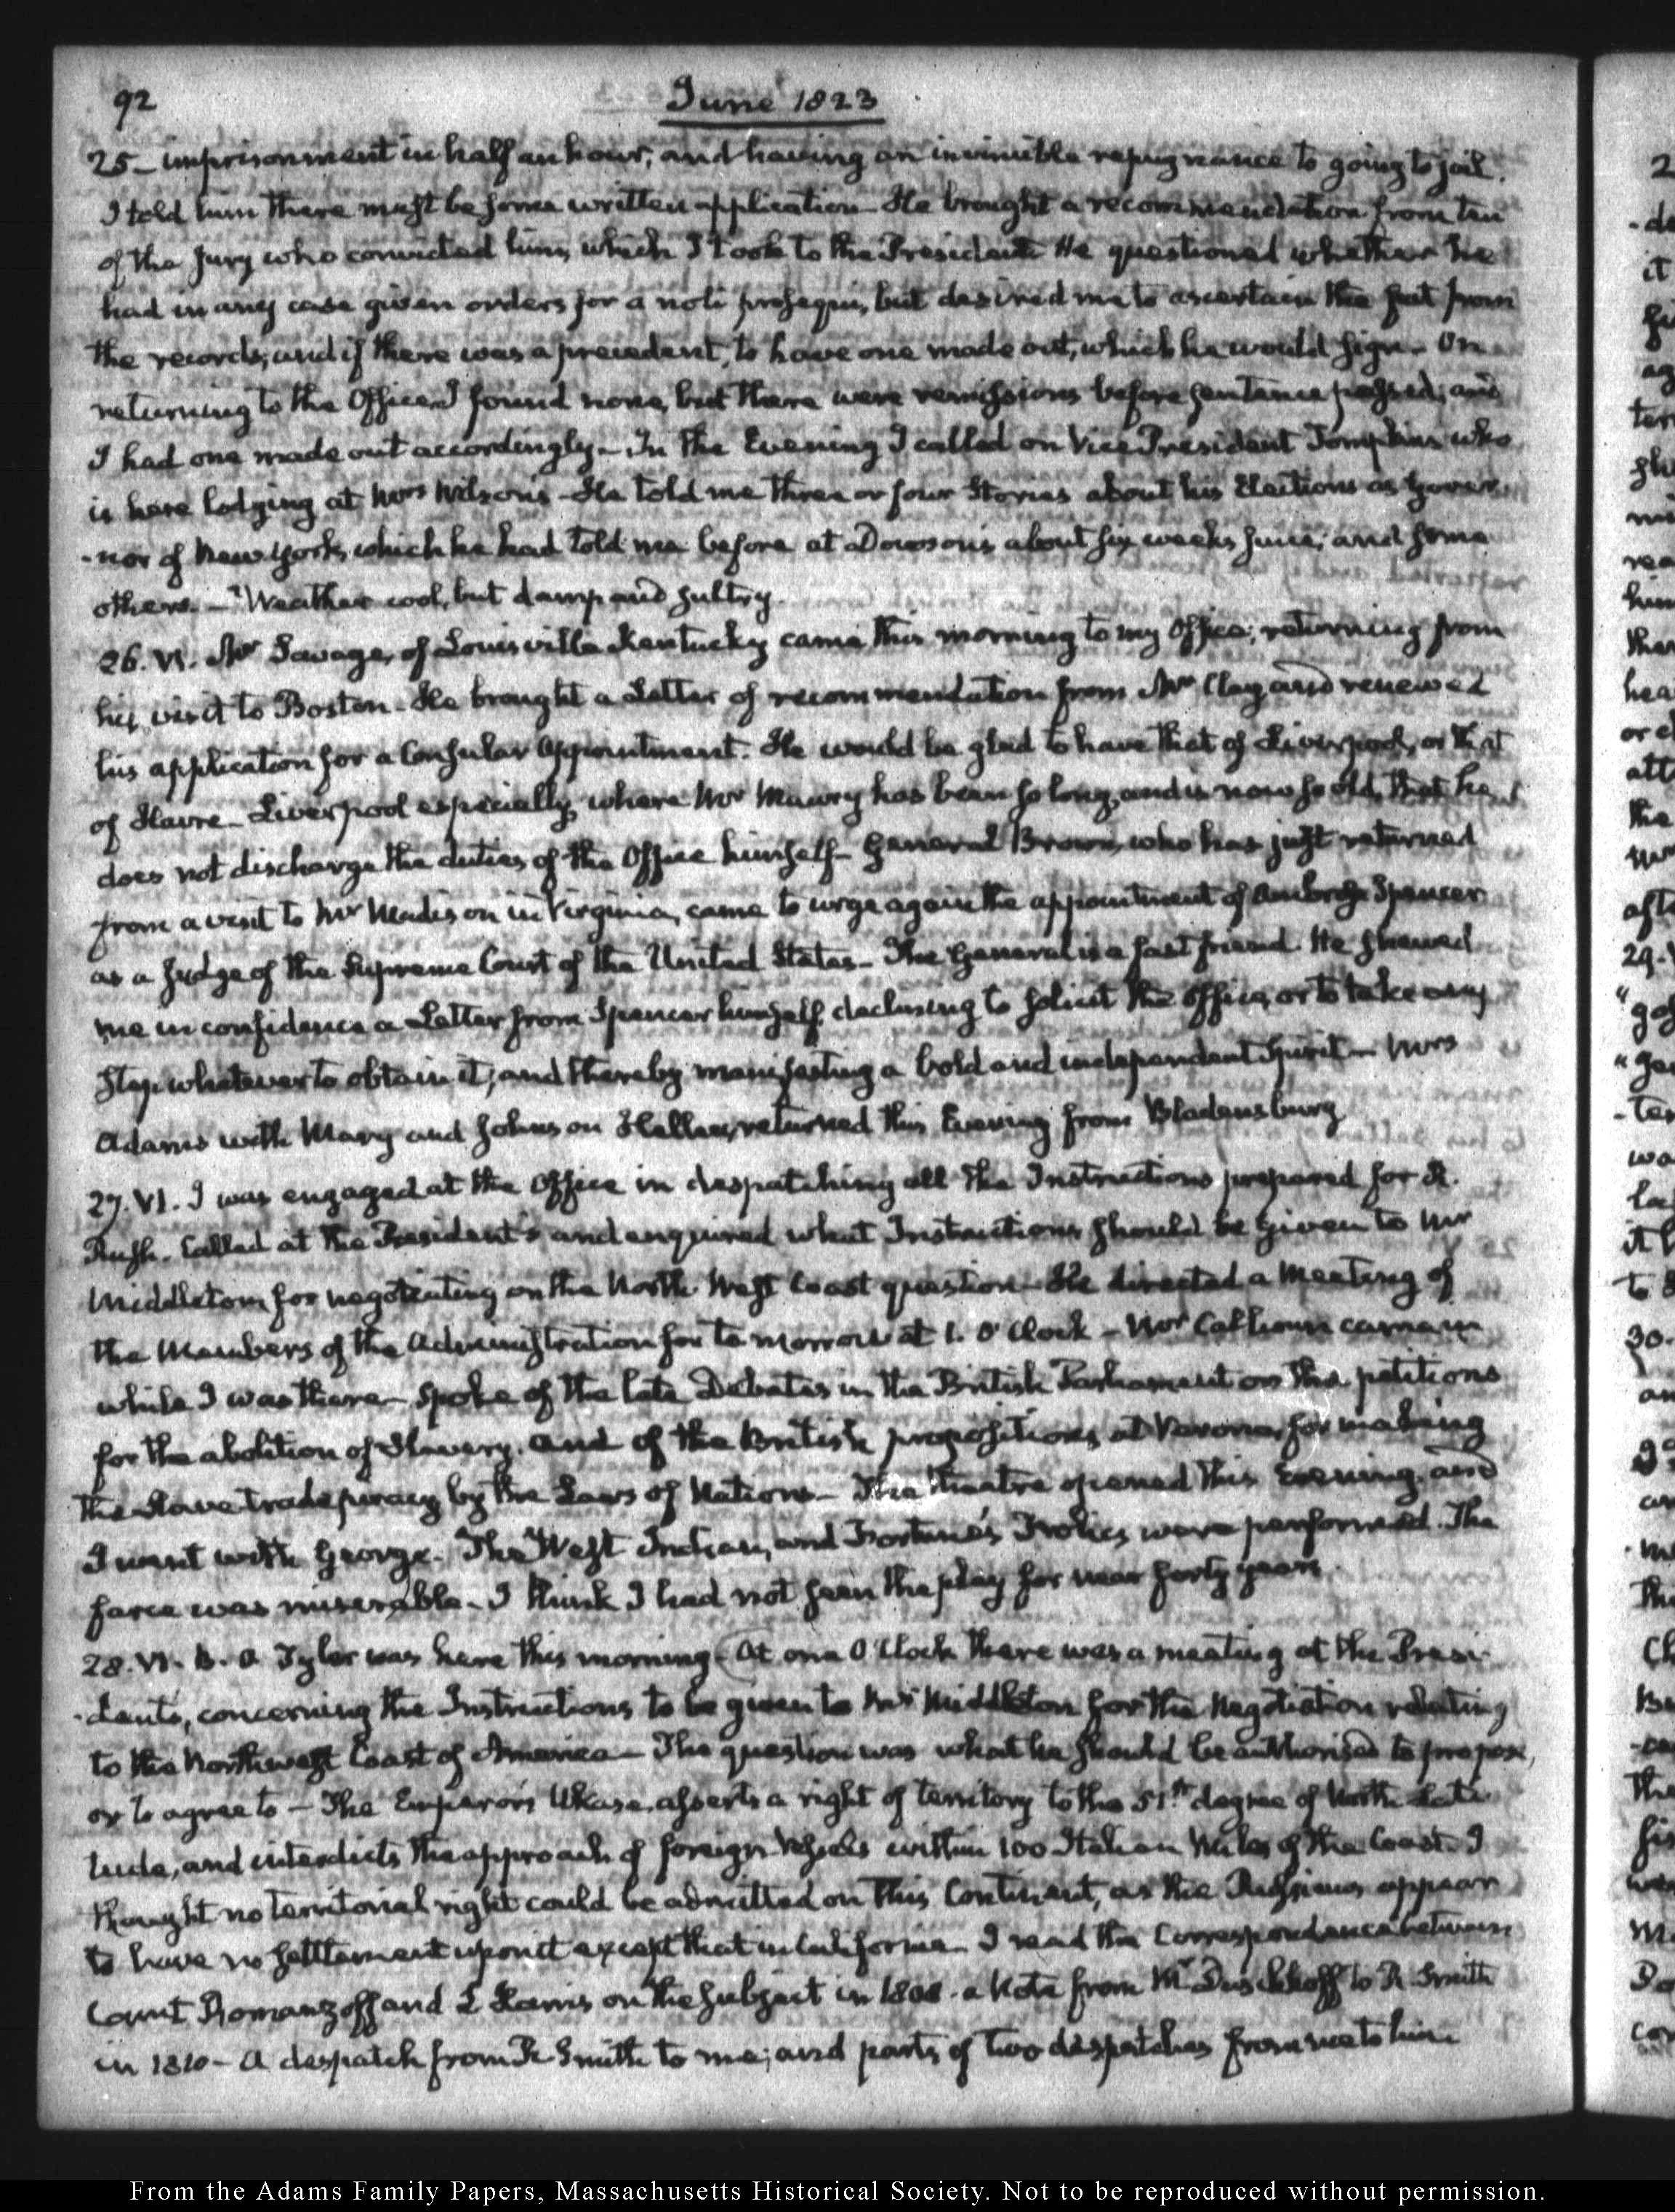 92
June 1823
25 - imprisonment in half an hour; and having an invincible repugnance to going to jail.
I told him there must be some written application - He brought a recommendation from ten
of the Jury who convicted him, which I took to the President. He questioned whether he
had in any case given orders for a noli prosequi, but desired me to ascertain the fact from
the records; and if there was a precedent, to have one made out, which he would sign - On
returning to the Office I found none, but there were remissions before sentence passed; and
I had one made out accordingly - In the Evening I called on Vice President Tompkins who
is here lodging at Mrs Wilson's - He told me three or four Stories about his Elections as Gover-
-nor of New York, which he had told me before at Dowson's about six weeks since; and some
others. - Weather cool, but damp and sultry.
26. VI. Mr Savage, of Louisville Kentucky came this morning to my Office; returning from
his visit to Boston - He brought a Letter of recommendation from Mr Clay and renewed
his application for a Consular Appointment. He would be glad to have that of Liverpool, or that
of Havre - Liverpool especially, where Mr Maury has been so long, and is now so old, that he
does not discharge the duties of the Office himself - General Brown, who has just returned
from a visit to Mr Madison in Virginia, came to urge again the appointment of Ambrose Spencer
as a Judge of the Supreme Court of the United States - The General is a fast friend. He shewed
me in confidence a Letter from Spencer himself, declining to solicit the Office, or to take any
step whatever to obtain it; and thereby manifesting a bold and independent Spirit - Mrs
Adams with Mary and Johnson Hellen, returned this Evening from Bladensburg
27. VI. I was engaged at the Office in despatching all the Instructions prepared for R.
Rush. Called at the President's and enquired what Instructions should be given to Mr
Middleton for negotiating on the North West Coast question - He directed a Meeting of
the Members of the Administration for to morrow at 1. O'Clock - Mr Calhoun came in
while I was there - Spoke of the late Debates in the British Parliament on the petitions
for the abolition of Slavery. and of the British propositions at Verona, for making
the Slave trade piracy by the Laws of Nations - The theatre opened this Evening, and
I went with George. The West Indian, and Fortune's Frolics were performed. The
farce was miserable - I think I had not seen the play for near forty years.
28. VI. B. O Tyler was here this morning - At one O'Clock there was a meeting at the Presi-
-dent's, concerning the Instructions to be given to Mr Middleton for the Negotiation relating
to the Northwest Coast of America - The question was what he should be authorised to propose,
or to agree to - The Emperor's Ukase asserts a right of territory to the 51st degree of North Lati-
tude, and interdicts the approach of foreign Vessels within 100 Italian Miles of the Coast. I
thought no territorial right could be admitted on this Continent, as the Russians appear
to have no settlement upon it except that in California - I read the Correspondence between
Count Romanzoff and L Harris on the subject in 1808 - a Note from Mr Daschkoff to R Smith
in 1810 - A despatch from R Smith to me; and parts of two despatches from me to him
From the Adams Family Papers, Massachusetts Historical Society. Not to be reproduced without permission.